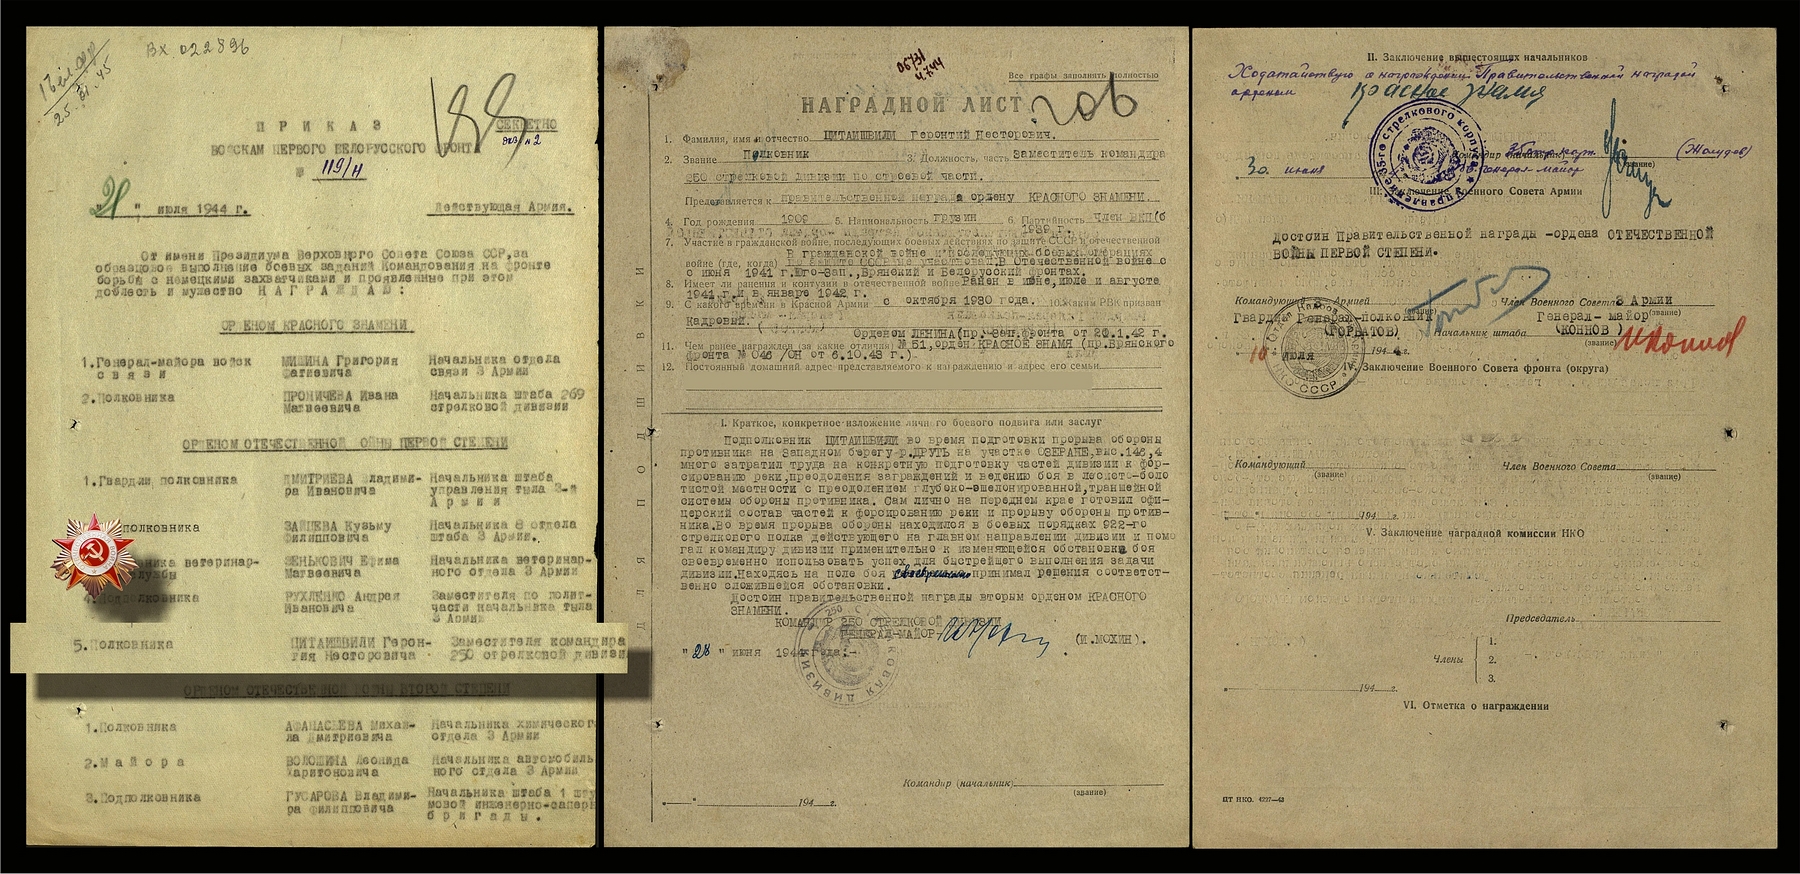 17 экз.
25.
45
ВХ 022896
188
СЕКРЕТНО
экз. № 2
П Р И К А З
ВОЙСКАМ ПЕРВОГО БЕЛОРУССКОГО ФРОНТА
№ 119/н
" июля 1944 г. Действующая Армия.
От имени Президиума Верховного Совета Союза ССР,за
образцовое выполнение боевых заданий Командования на фронте
борьбы с немецкими захватчиками и проявленные при этом
доблесть и мужество Н А Г Р А Ж Д А Ю :
ОРДЕНОМ КРАСНОГО ЗНАМЕНИ
1.Генерал-майора войск МИШИНА Григория Начальника отдела
с в я з и Фатиевича связи 3 Армии
2.Полковника ПРОНИЧЕВА Ивана Начальника штаба 269
Матвеевича стрелковой дивизии
ОРДЕНОМ ОТЕЧЕСТВЕННОЙ ВОЙНЫ ПЕРВОЙ СТЕПЕНИ
1.Гвардии полковника ДМИТРИЕВА Владими- Начальника штаба
ра Ивановича управления тыла 3-й
А р м и и
полковника ЗАЙЦЕВА Кузьму Начальника 8 отдела
Филипповича штаба 3 Армии.
ника ветеринар- ЗЕНЬКОВИЧ Ефима Начальника ветеринар-
службы Матвеевича ного отдела 3 Армии
4.Подполковника РУХЛЕНКО Андрея Заместителя по полит-
Ивановича части начальника тыла
3 Армии
5.Полковника ЦИТАИШВИЛИ Герон- Заместителя командира
тия Несторовича 250 стрелковой дивизии
ОРДЕНОМ ОТЕЧЕСТВЕННОЙ ВОЙНЫ ВТОРОЙ СТЕПЕНИ
1.Полковника АФАНАСЬЕВА Михаи- Начальника химического
ла Дмитриевича отдела 3 Армии
2.М а й о р а ВОЛОШИНА Леонида Начальника автомобиль
Харитоновича ного отдела 3 Армии
3.Подполковника ГУСАРОВА Владими- Начальника штаба 1 шту
ра Филипповича мовой инженерно-саперн
б р и г а д ы .
0673/
4.7.44
Все графы заполнять полностью
НАГРАДНОЙ ЛИСТ
1. Фамилия, имя и отчество ЦИТАИШВИЛИ Геронтий Несторович.
2. Звание Полковник 3. Должность, часть Заместитель командира
250 стрелковой дивизии по строевой части.
Представляется к правительственной награде ордену КРАСНОГО ЗНАМЕНИ.
4. Год рождения 1909 5. Национальность грузин 6. Партийность Член ВКП(б
1939 г.
7. Участие в гражданской войне, последующих боевых действиях по защите СССР и отечественной
войне (где, когда) В гражданской войне и последующих боевых операциях
по защите СССР не участвовал.В Отечественной войне с
с июня 1941 г.Юго-Зап.,Брянский и Белорусский фронтах.
8. Имеет ли ранения и контузии в отечественной войне Ранен в июне,июле и августе
1941 г.и в январе 1942 г.
9. С какого времени в Красной Армии с октября 1930 года. 10. Каким РВК призван
Кадровый.
Орденом ЛЕНИНА(пр. Зап.фронта от 20.1.42 г.
11. Чем ранее награжден (за какие отличия) № 51,орден КРАСНОЕ ЗНАМЯ (пр.Брянского
фронта № 046 /ОН от 6.10.43 г.)
12. Постоянный домашний адрес представляемого к награждению и адрес его семьи
ДЛЯ ПОДШИВКИ
I. Краткое, конкретное изложение личного боевого подвига или заслуг
Подполковник ЦИТАИШВИЛИ во время подготовки прорыва обороны
противника на Западном берегу р.ДРУТЬ на участке ОЗЕРАНЕ,выс.148,4
много затратил труда на конкретную подготовку частей дивизии к фор-
сированию реки,преодоления заграждений и ведению боя в лесисто-боло
тистой местности с преодолением глубоко-эшелонированной,траншейной
системы обороны противника. Сам лично на переднем крае готовил офи-
церский состав частей к форсированию реки и прорыву обороны против-
ника.Во время прорыва обороны находился в боевых порядках 922-го
стрелкового полка действующего на главном направлении дивизии и помо
гал командиру дивизии применительно к изменяющейся обстановке боя
своевременно использовать успех для быстрейшего выполнения задачи
дивизии.Находясь на поле боя своевременно принимал решения соответст-
венно сложившейся обстановки.
Достоин правительственной награды вторым орденом КРАСНОГО
ЗНАМЕНИ.
КОМАНДИР 250 СТРЕЛКОВОЙ ДИВИЗИИ
ГЕНЕРАЛ-МАЙОР (И.МОХИН).
" 28 " июня 1944 года.-
Командир (начальник)
(звание)
194 г.
II. Заключение вышестоящих начальников
Ходатайствую о награждении Правительственной наградой
орденом Красное знамя
Командир (начальник) 35 стр. корп. (Жолудев)
(звание)
30 июня генерал майор
III. Заключение Военного Совета Армии
Достоин Правительственной награды -ордена ОТЕЧЕСТВЕННОЙ
ВОЙНЫ ПЕРВОЙ СТЕПЕНИ.
Командующий Армией Член Военного Совета 3 Армии
Гвардии Генерал-полковник Генерал-майор (звание)
(ГОРБАТОВ) Начальник штаба (КОННОВ)
(звание)
10 июля 1944 г.
IV. Заключение Военного Совета фронта (округа)
Командующий Член Военного Совета
(звание) (звание)
194 г.
V. Заключение наградной комиссии НКО
Председатель
Члены
1.
2.
3.
194 г.
VI. Отметка о награждении
ПТ НКО. 4227—43